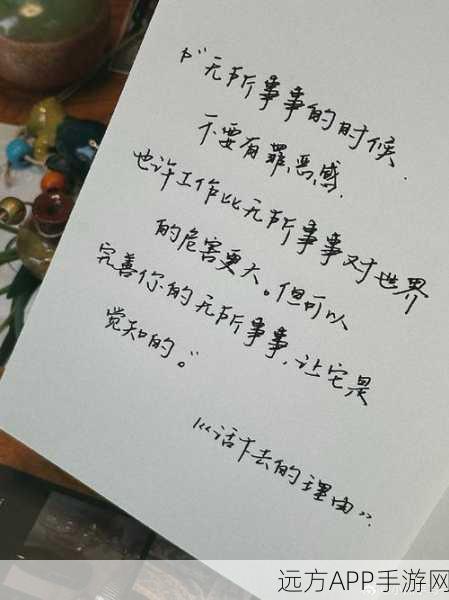 “无所事事的时候
不要有罪恶感.
也许工作比无所事事对世界
的危害更大。但可以
完善你的无所事事,让它是
觉知的。”
《活下去的理由》.
远方APP手游网